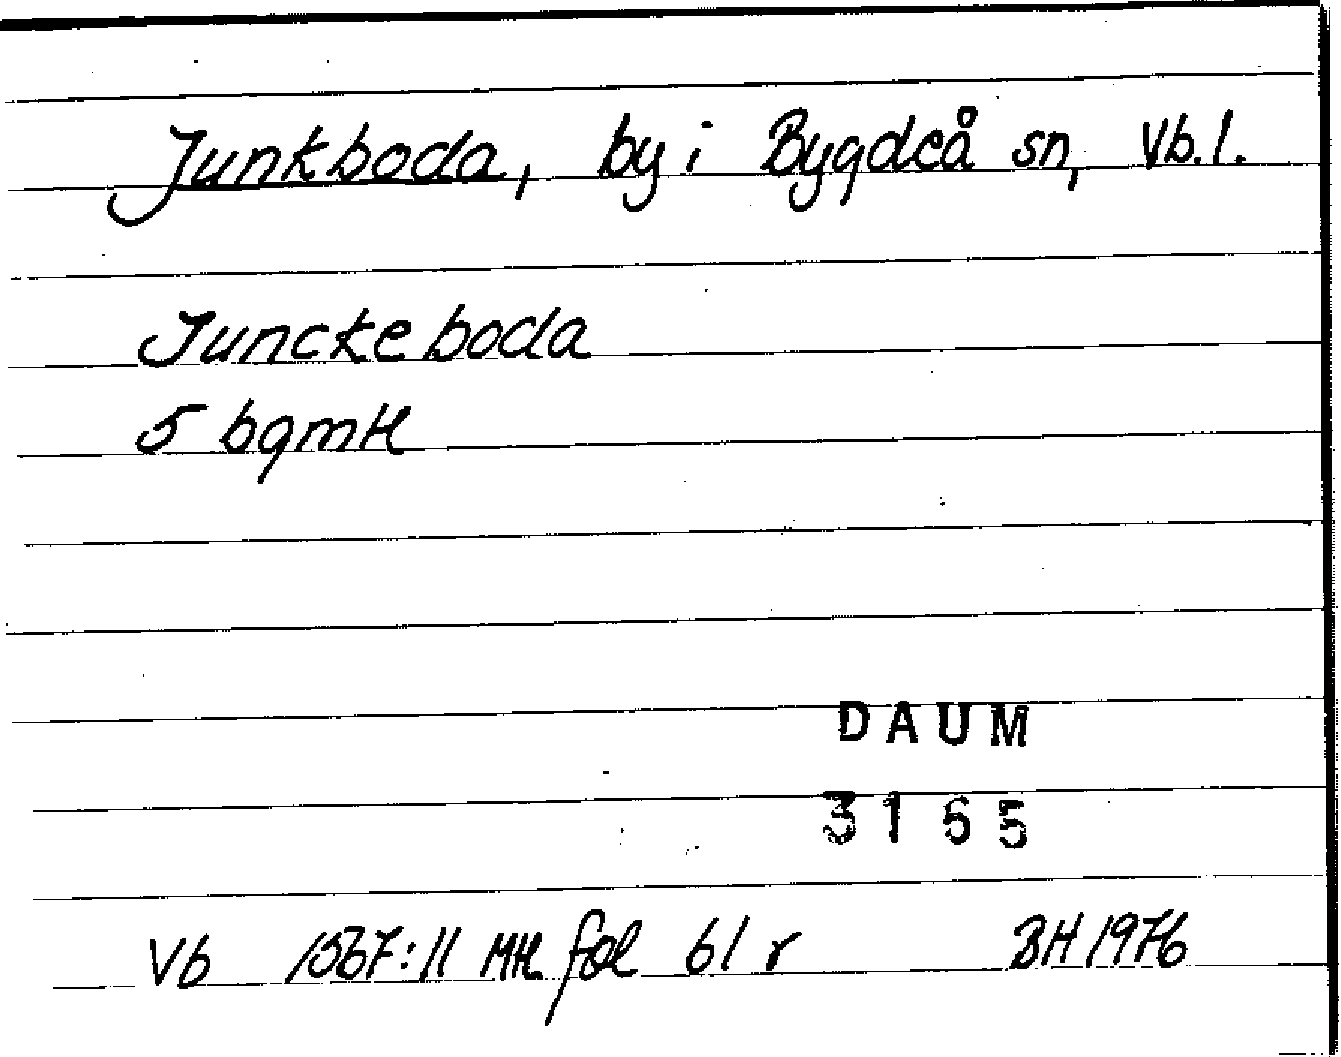 Junkboda, by i Bygdeå sn, Vb.l.
Junckeboda
5 bgmtl
DAUM
3165
Vb 1567:11 Mtl fol 61 r BH 1976